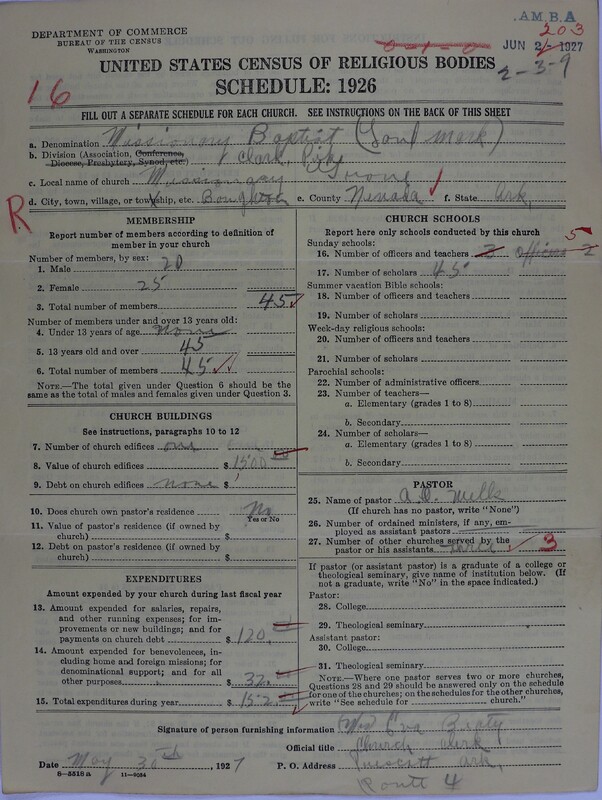 .A.M.B.A
203
DEPARTMENT OF COMMERCE
BUREAU OF THE CENSUS
WASHINGTON
JUN 2 1927
2-3-9
UNITED STATES CENSUS OF RELIGIOUS BODIES
SCHEDULE: 1926
16
FILL OUT A SEPARATE SCHEDULE FOR EACH CHURCH. SEE INSTRUCTIONS ON THE BACK OF THIS SHEET
a. Denomination Missionary Baptist (Land mark)
b. Division (Association, Conference, Diocese, Presbytery, Synod, etc.) Clark, Pike
c. Local name of church Missionary Grove
d. City, town, village, or township, etc. Boughton e. County Nevada f. State Ark,
R
MEMBERSHIP
Report number of members according to definition of member in your church
Number of members, by sex:
1. Male 20
2. Female 25
3. Total number of members 45
Number of members under and over 13 years old:
4. Under 13 years of age None
5. 13 years old and over 45
6. Total number of members 45
NOTE.—The total given under Question 6 should be the same as the total of males and females given under Question 3.
CHURCH BUILDINGS
See instructions, paragraphs 10 to 12
7. Number of church edifices one
8. Value of church edifices $ 1500
9. Debt on church edifices none $
10. Does church own pastor's residence No
Yes or No
11. Value of pastor's residence (if owned by church) $
12. Debt on pastor's residence (if owned by church) $
EXPENDITURES
Amount expended by your church during last fiscal year
13. Amount expended for salaries, repairs, and other running expenses; for improvements or new buildings; and for payments on church debt $ 120.
14. Amount expended for benevolences, including home and foreign missions; for denominational support; and for all other purposes $ 32.
15. Total expenditures during year $ 152.
CHURCH SCHOOLS
Report here only schools conducted by this church
Sunday schools:
16. Number of officers and teachers 3 officers 2
5
17. Number of scholars 45
Summer vacation Bible schools:
18. Number of officers and teachers
19. Number of scholars
Week-day religious schools:
20. Number of officers and teachers
21. Number of scholars
Parochial schools:
22. Number of administrative officers
23. Number of teachers—
a. Elementary (grades 1 to 8)
b. Secondary
24. Number of scholars—
a. Elementary (grades 1 to 8)
b. Secondary
PASTOR
25. Name of pastor A.D. Mills
(If church has no pastor, write "None")
26. Number of ordained ministers, if any, employed as assistant pastors
27. Number of other churches served by the pastor or his assistants 3
If pastor (or assistant pastor) is a graduate of a college or theological seminary, give name of institution below. (If not a graduate, write "No" in the space indicated.)
Pastor:
28. College
29. Theological seminary
Assistant pastor:
30. College
31. Theological seminary
NOTE.—Where one pastor serves two or more churches, Questions 28 and 29 should be answered only on the schedule for one of the churches; on the schedules for the other churches, write "See schedule for church."
Signature of person furnishing information Mrs Eva Beaty
Official title Church clerk
Date May 30th, 1927 P. O. Address Prescott Ark,
Routt 4
8—5518 a 11—8034